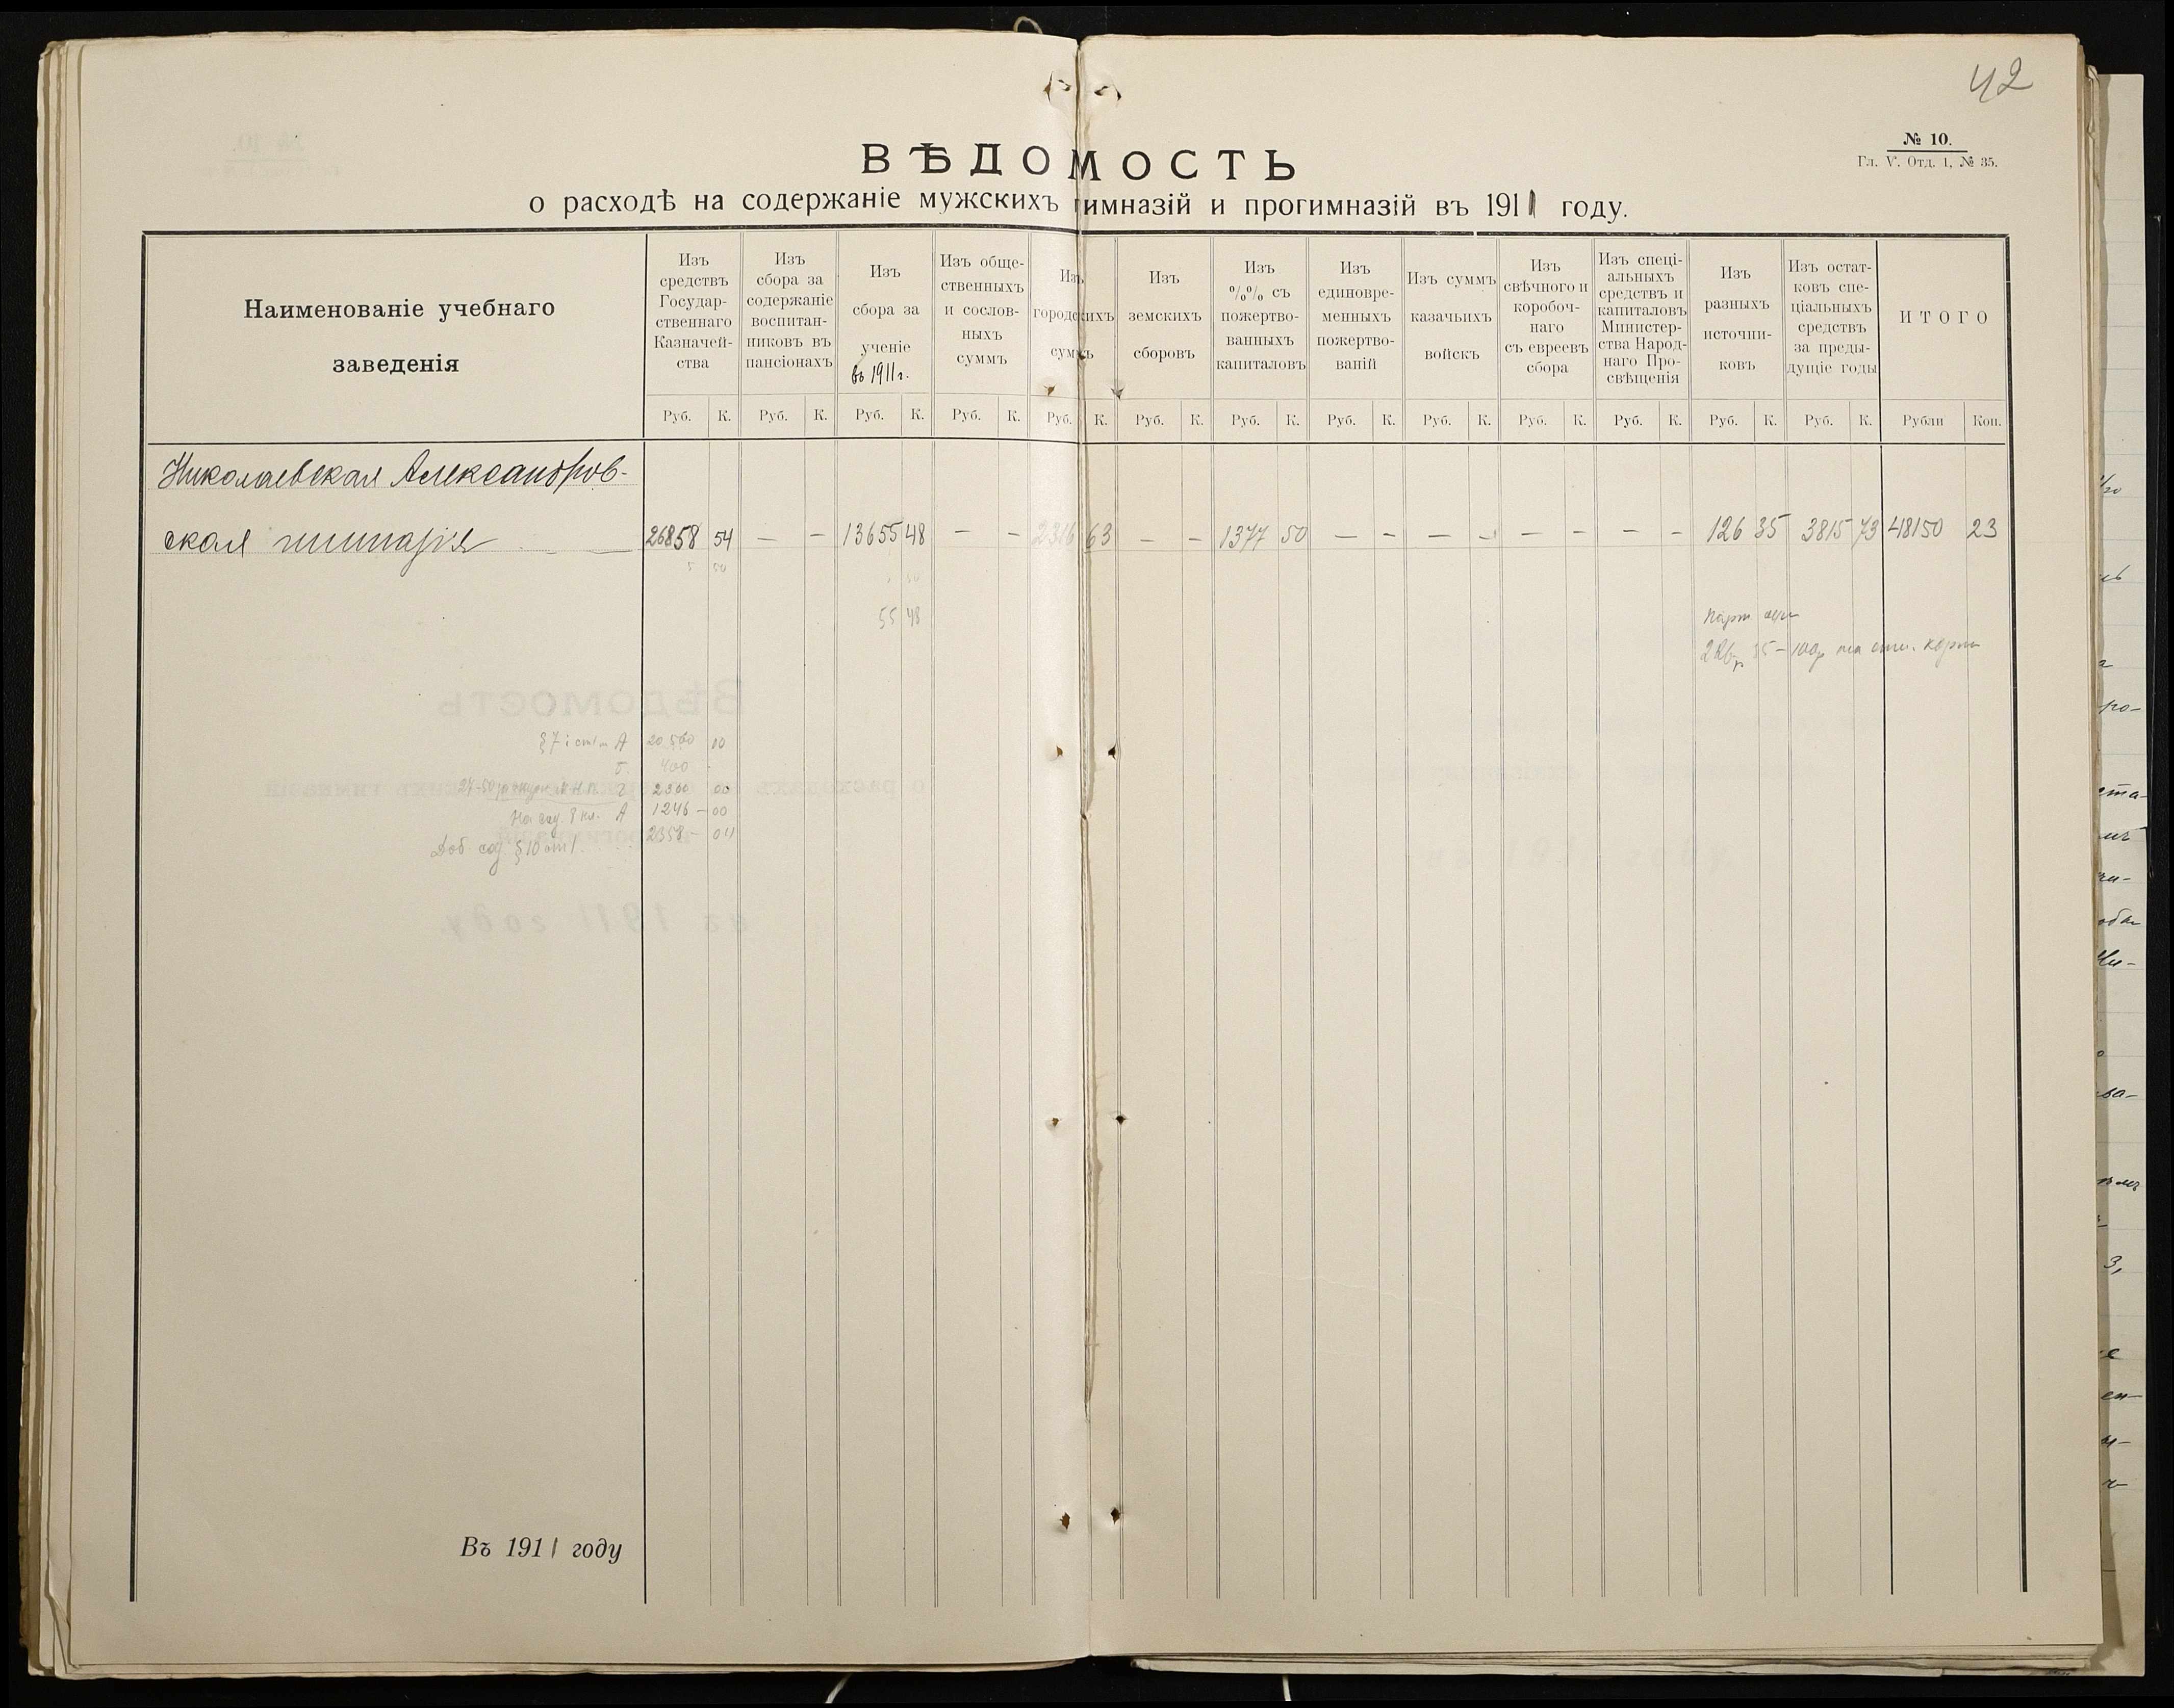 42
№ 10.
Гл. V. Отд. 1, № 35.
ВѢДОМОСТЬ
о расходѣ на содержаніе мужскихъ гимназій и прогимназій въ 1911 году.
Наименованіе учебнаго
заведенія
Изъ
средствъ
Государ-
ственнаго
Казначей-
ства
Изъ
сбора за
содержаніе
воспитан-
никовъ въ
пансіонахъ
Изъ
сбора за
ученіе
въ 1911 г.
Изъ обще-
ственныхъ
и сослов-
ныхъ
суммъ
Изъ
городскихъ
суммъ
Изъ
земскихъ
сборовъ
Изъ
%% съ
пожертво-
ванныхъ
капиталовъ
Изъ
единовре-
менныхъ
пожертво-
ваній
Изъ суммъ
казачьихъ
войскъ
Изъ
свѣчного и
коробоч-
наго
съ евреевъ
сбора
Изъ спеці-
альныхъ
средствъ и
капиталовъ
Министер-
ства Народ-
наго Про-
свѣщенія
Изъ
разныхъ
источни-
ковъ
Изъ остат-
ковъ спе-
ціальныхъ
средствъ
за преды-
дущіе годы
ИТОГО
Руб. К. Руб. К. Руб. К. Руб. К. Руб. К. Руб. К. Руб. К. Руб. К. Руб. К. Руб. К. Руб. К. Руб. К. Руб. К. Рубли Коп.
Николаевская Александров-
ская гимназія 26858 54 — — 13655 48 — — 2316 63 — — 1377 50 — — — — — — — — 126 35 3815 73 48150 23
5 50
55 48
226р 35 – 100р
§ 7 А 20500 00
400 -
2300 00
А 1246 – 00
Доб сод § 10 ст 1 2358 – 04
Въ 1911 году